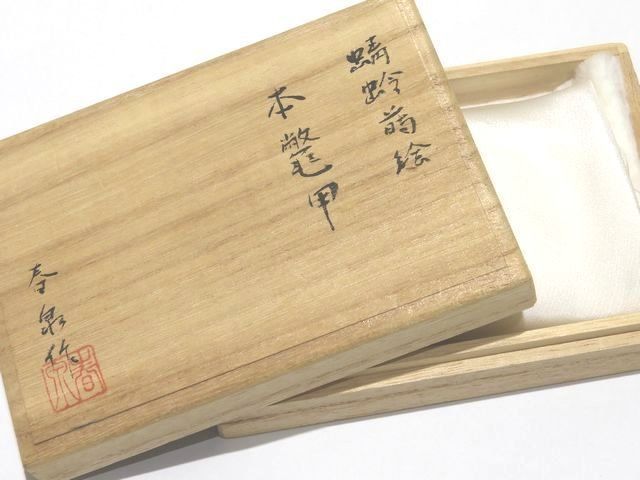 蜻蛉蒔絵
本鼈甲
春泉作
春泉